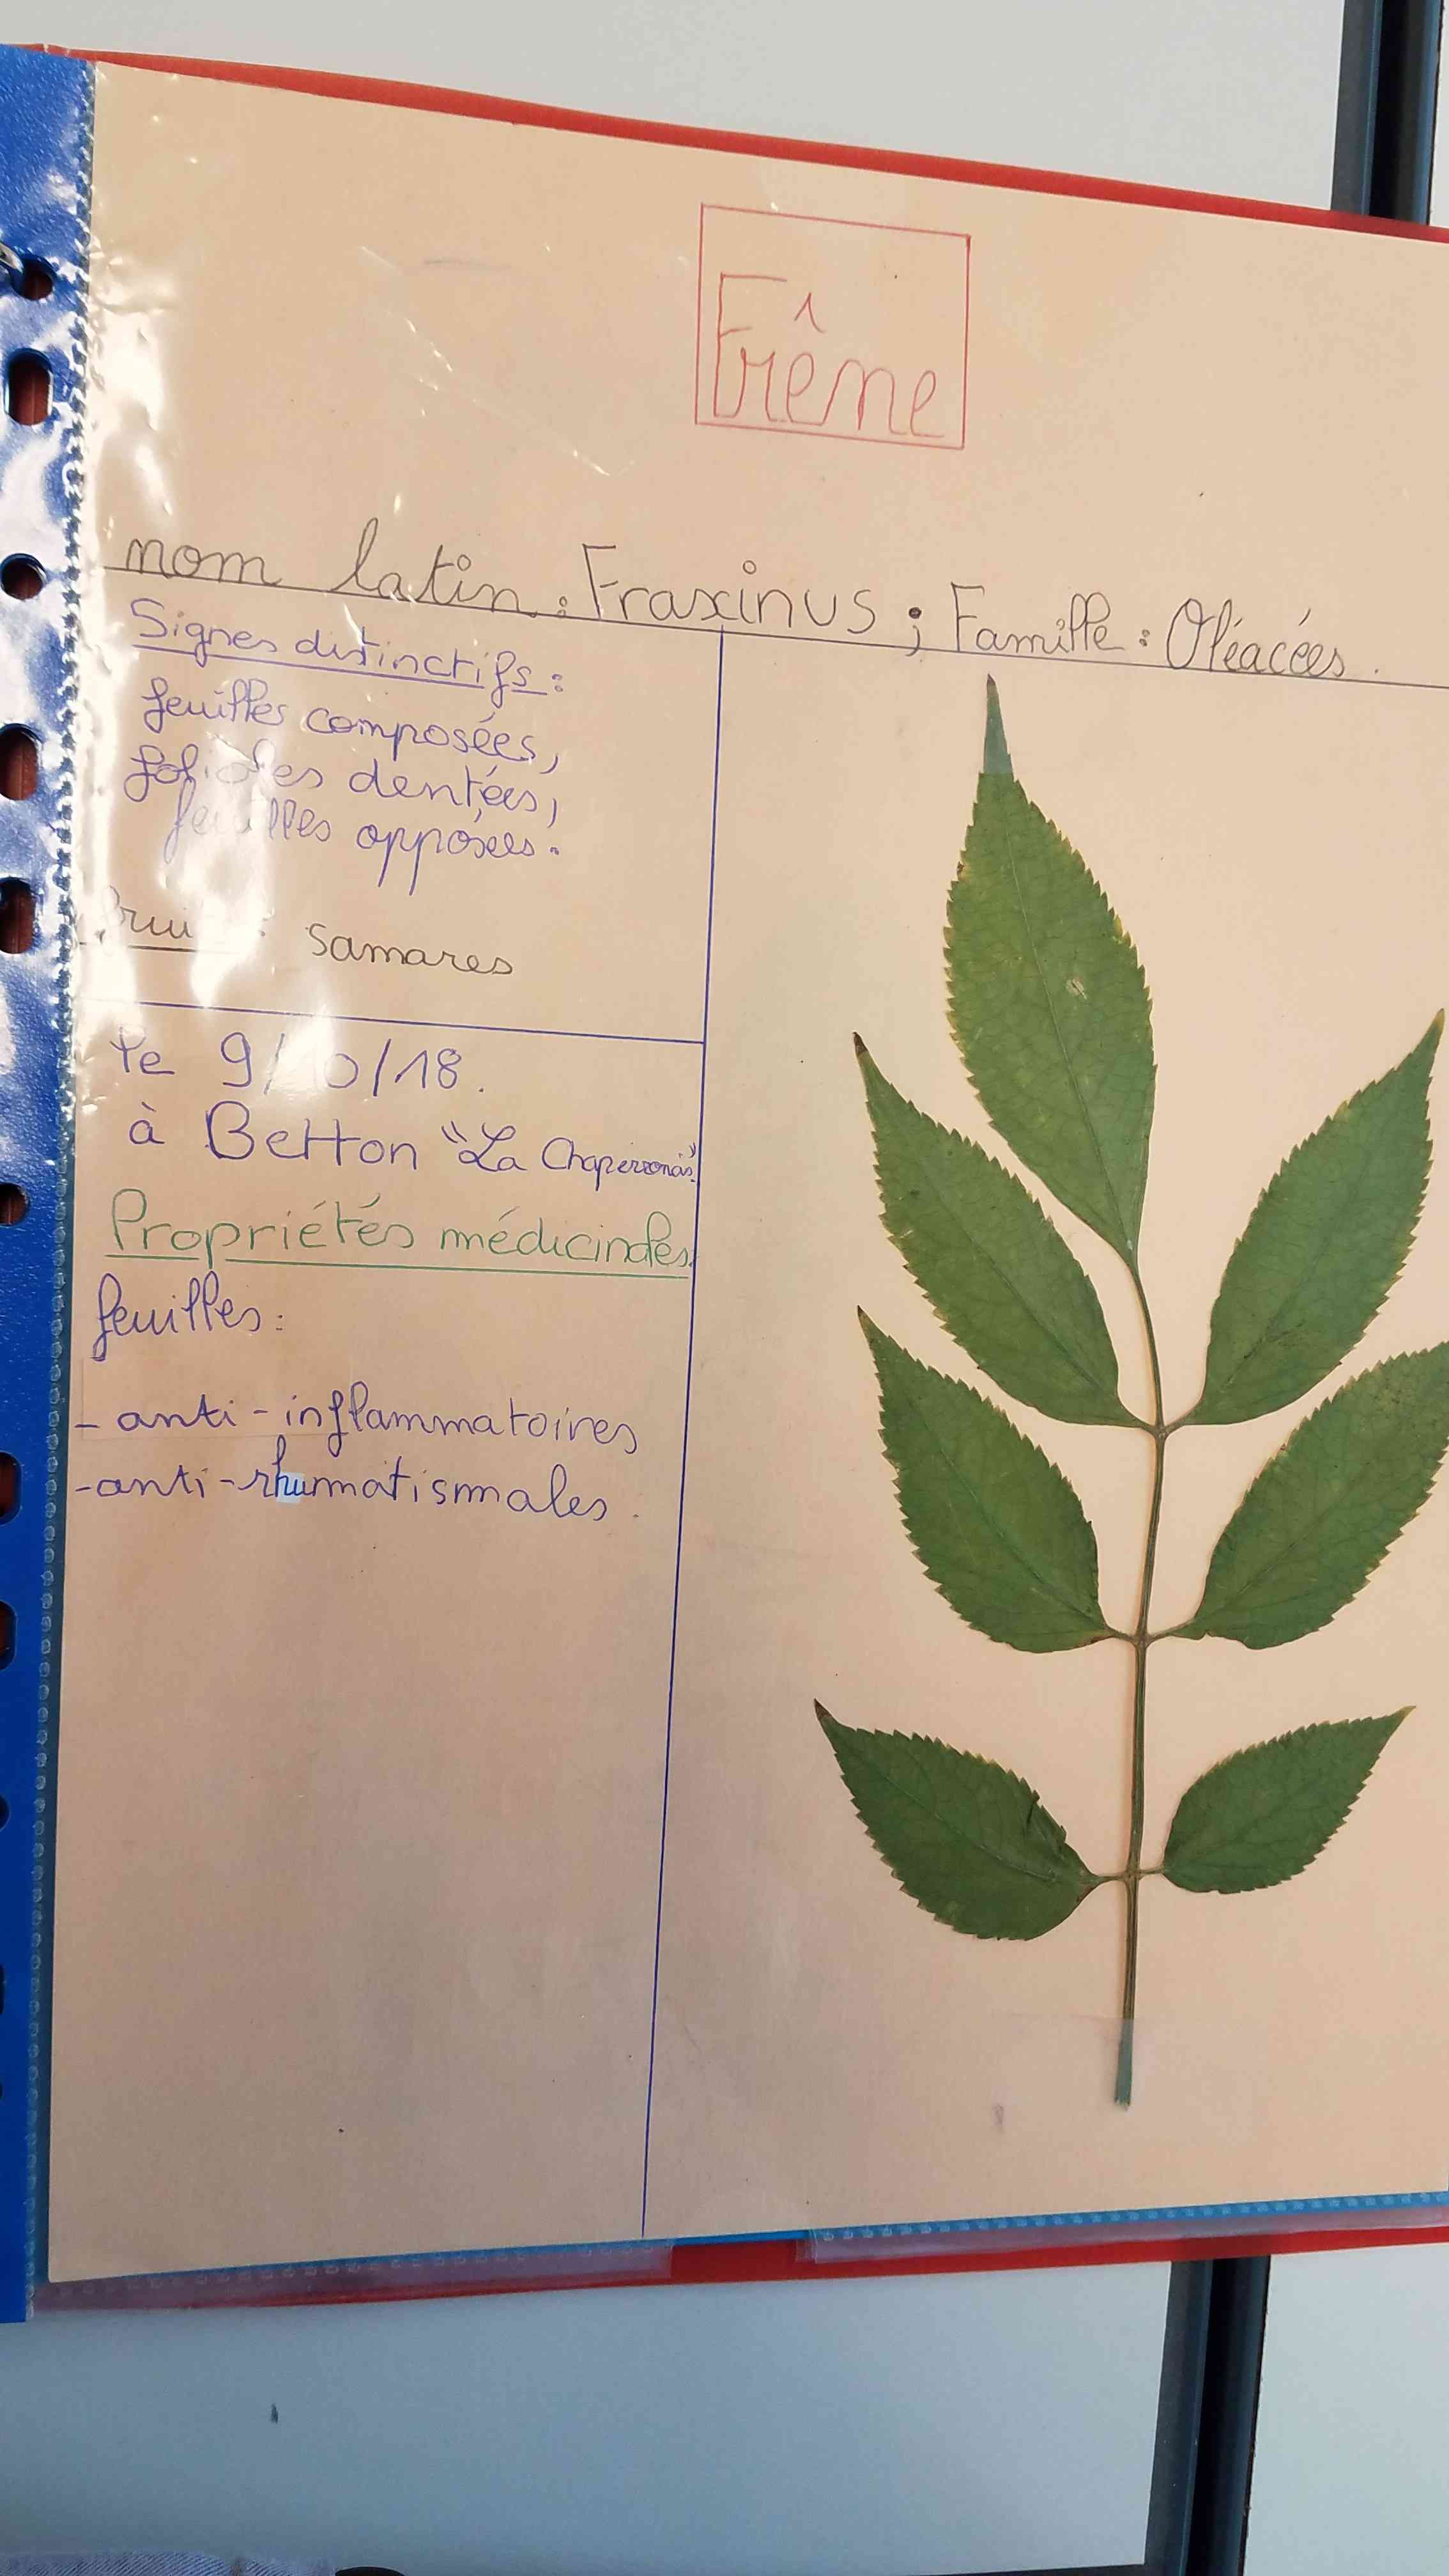 Frêne
nom latin : Fraxinus ; Famille : Oléacées.
Signes distinctifs :
feuilles composées,
folioles dentées,
feuilles opposées.
Samares
le 9/10/18.
à Betton "La
Propriétés médicinales.
feuilles :
- anti-inflammatoires
- anti-rhumatismales.